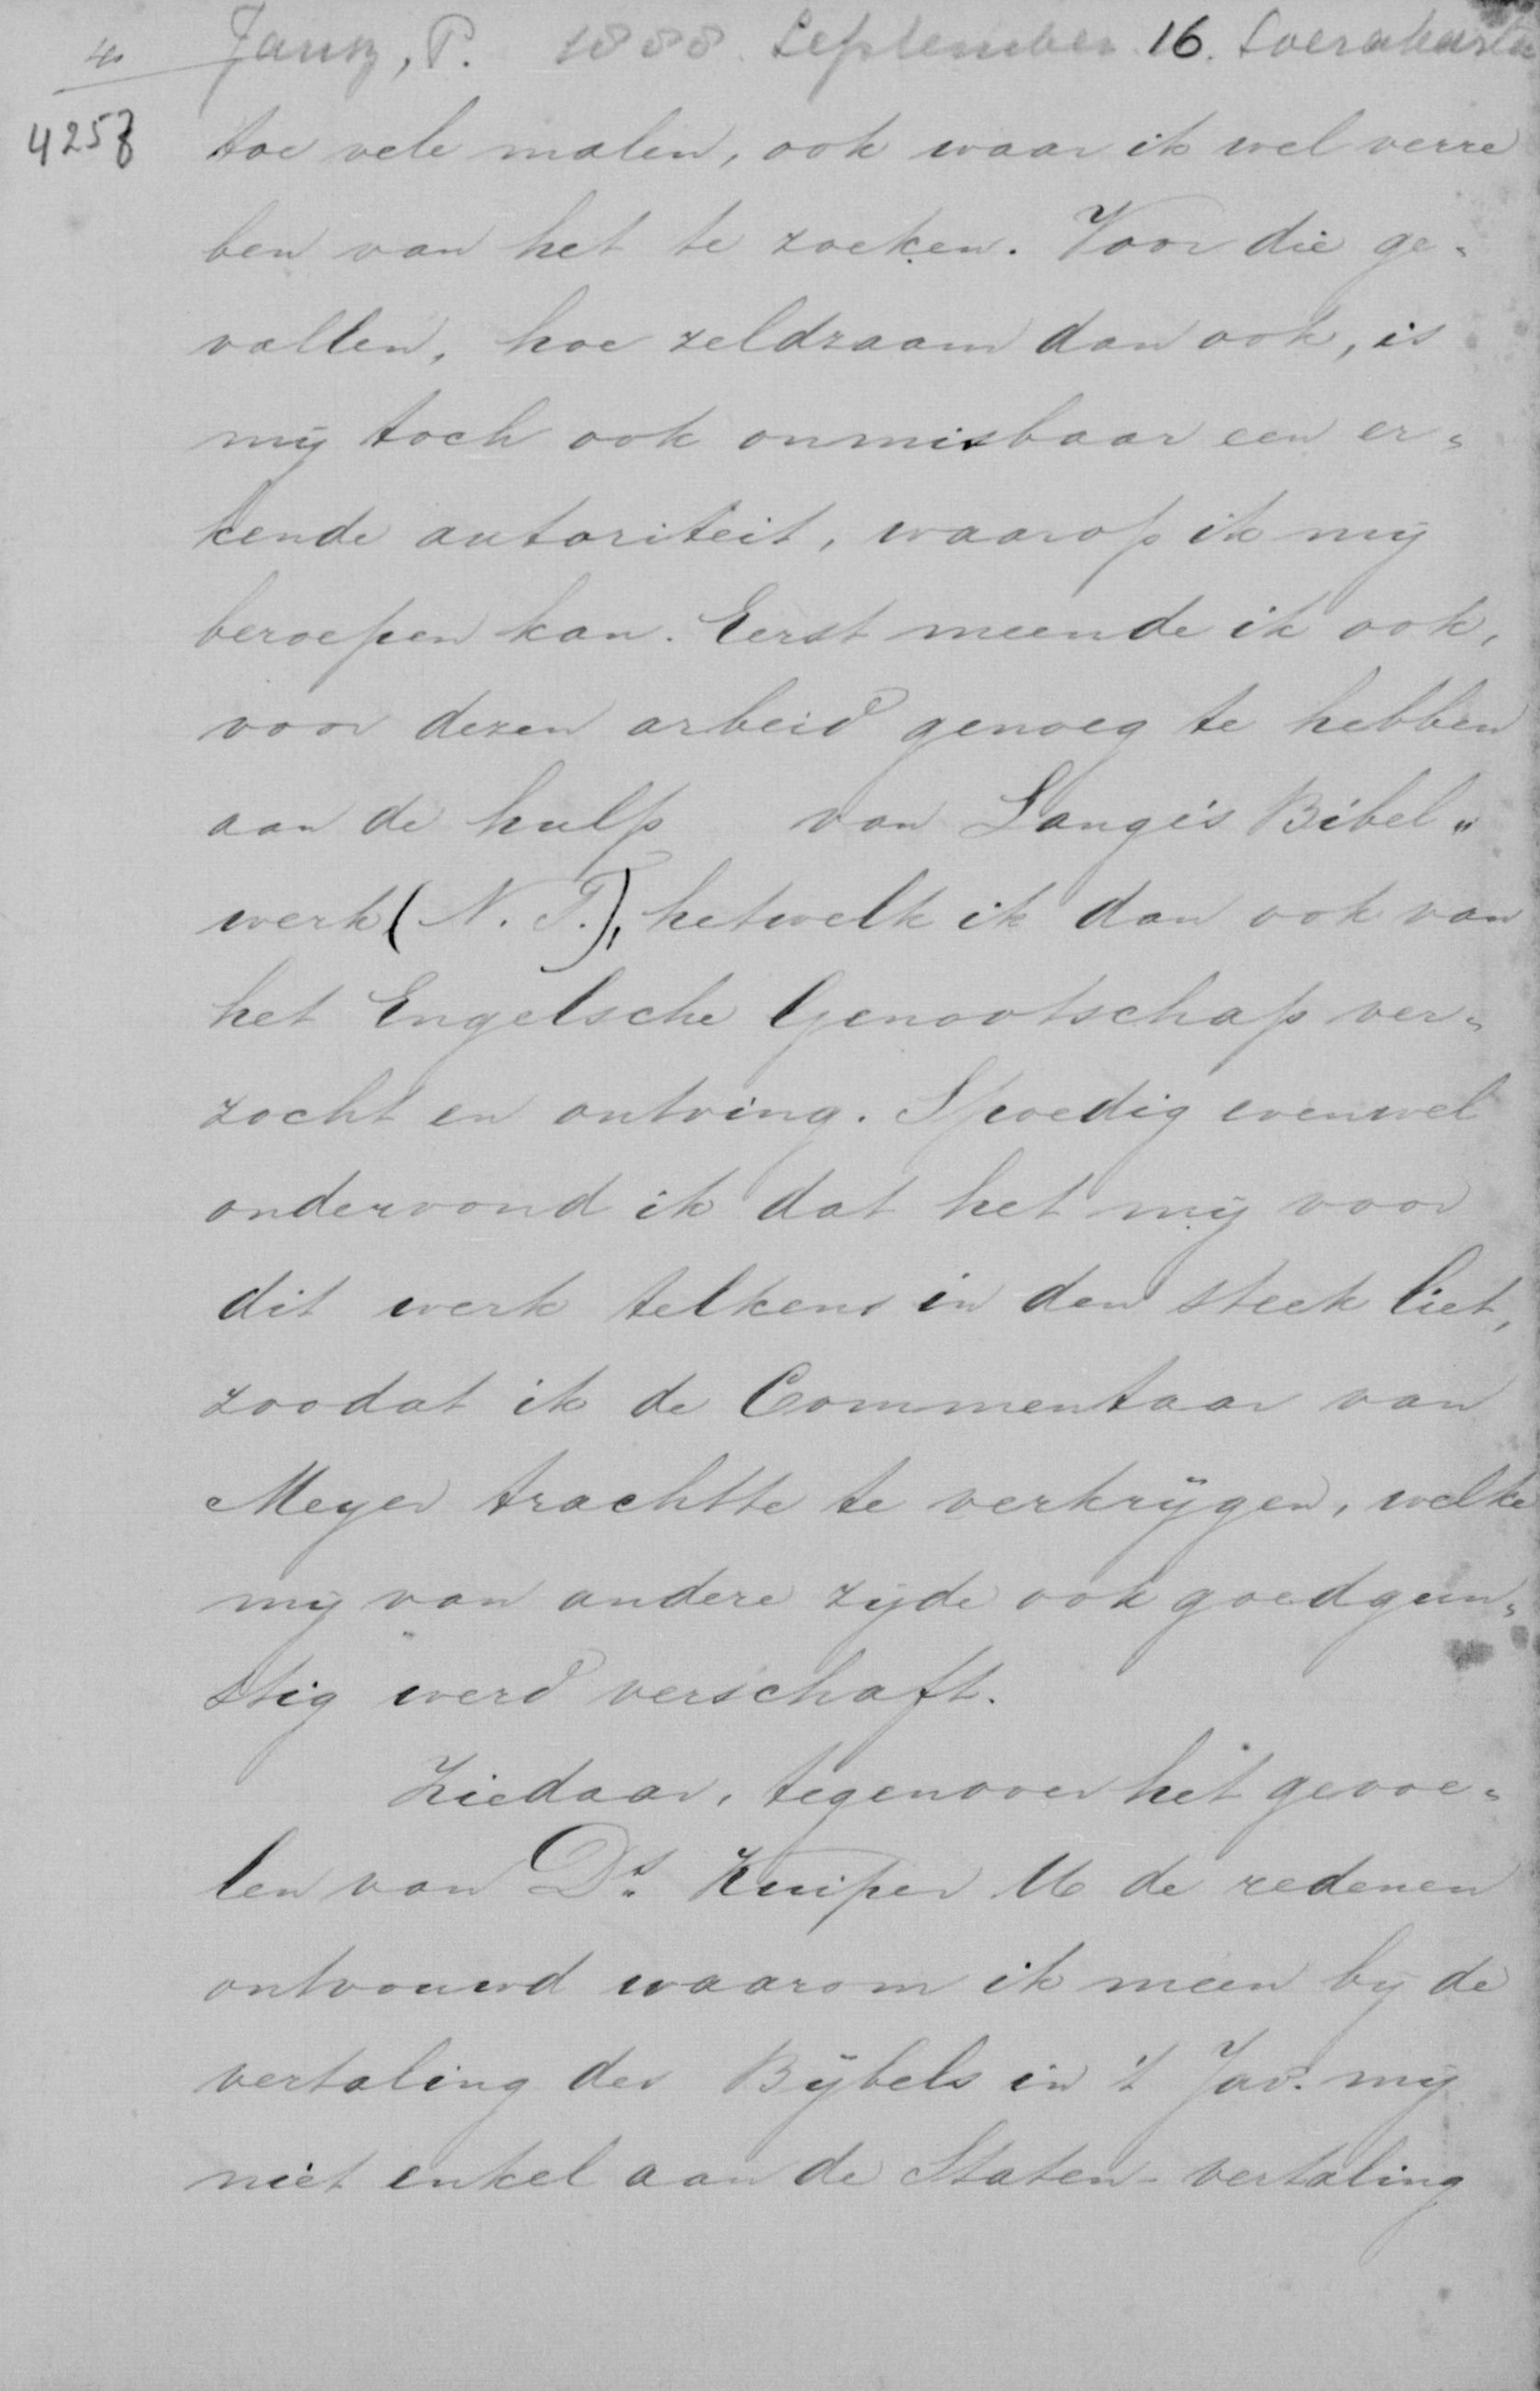 4 Jansz, P. 1888 September 16. Soerakarta
4257
toe vele malen, ook waar ik wel verre
ben van het te zoeken. Voor die ge=
vallen, hoe zeldzaam dan ook, is
mij toch ook onmisbaar een er=
kende autoriteit, waarop ik mij
beroepen kan. Eerst meende ik ook,
voor dezen arbeid genoeg te hebben
aan de hulp van Lange's Bibel=
werk (N. T.), hetwelk ik dan ook van
het Engelsche Genootschap ver=
zocht en ontving. Spoedig evenwel
ondervond ik dat het mij voor
dit werk telkens in den steek liet,
zoodat ik de Commentaar van
Meyer trachtte te verkrijgen, welke
mij van andere zijde ook goedgun=
stig werd verschaft.
Ziedaar, tegenover het gevoe=
len van Ds. Kuiper U de redenen
ontvouwd waarom ik meen bij de
vertaling des Bijbels in 't Jav. mij
niet enkel aan de Staten-vertaling